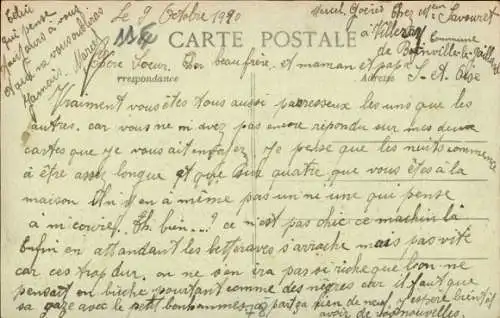 Celui
qui pense
toujours à vous
et qui ne vous oubliera
jamais. Marcel
Le 9 Octobre 1920
Marcel Chez Mr Savouret
à Villeroy
Commune
de
CARTE POSTALE
Chère Soeur. Ton beau frère. et maman et papa
Correspondance
Adresse
S-et-Oise
Vraiment vous êtes tous aussi paresseux les uns que les
autres. car vous ne m'avez pas encore répondu sur mes deux
cartes que je vous ait envoyez Je pense que les nuits commence
à être assez longue et que sur quatre que vous êtes à la
maison il n'y en a même pas un ne une qui pense
à m'ecrire. Eh bien...? ce n'est pas chic ce machin là
Enfin en attandant les betteraves s'arrache mais pas vite
car ces trop dur. on ne s'en ira pas si riche que l'on ne
pensait on biche pourtant comme des negres car il faut que
sa gaze avec le petit bonhommes. a part ça rien de neuf j'espere bientôt
avoir de vos nouvelles.